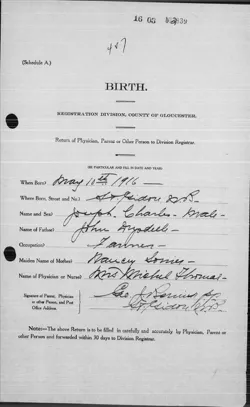 487
(Schedule A.)
BIRTH.
REGISTRATION DIVISION, COUNTY OF GLOUCESTER.
Return of Physician, Parent or Other Person to Division Registrar.
(BE PARTICULAR AND FILL IN DATE AND YEAR)
When Born? May 10th 1916
Where Born, Street and No.? St. Isidore N.B.
Name and Sex? Joseph Charles - Male
Name of Father? John
Occupation? Farmer
Maiden Name of Mother? Nancy
Name of Physician or Nurse? Mrs Michel Thomas
Signature of Parent, Physician
or other Person, and Post
Office Address. Geo J
St. Isidore N.B.
NOTE:—The above Return is to be filled in carefully and accurately by Physician, Parent or
other Person and forwarded within 30 days to Division Registrar.